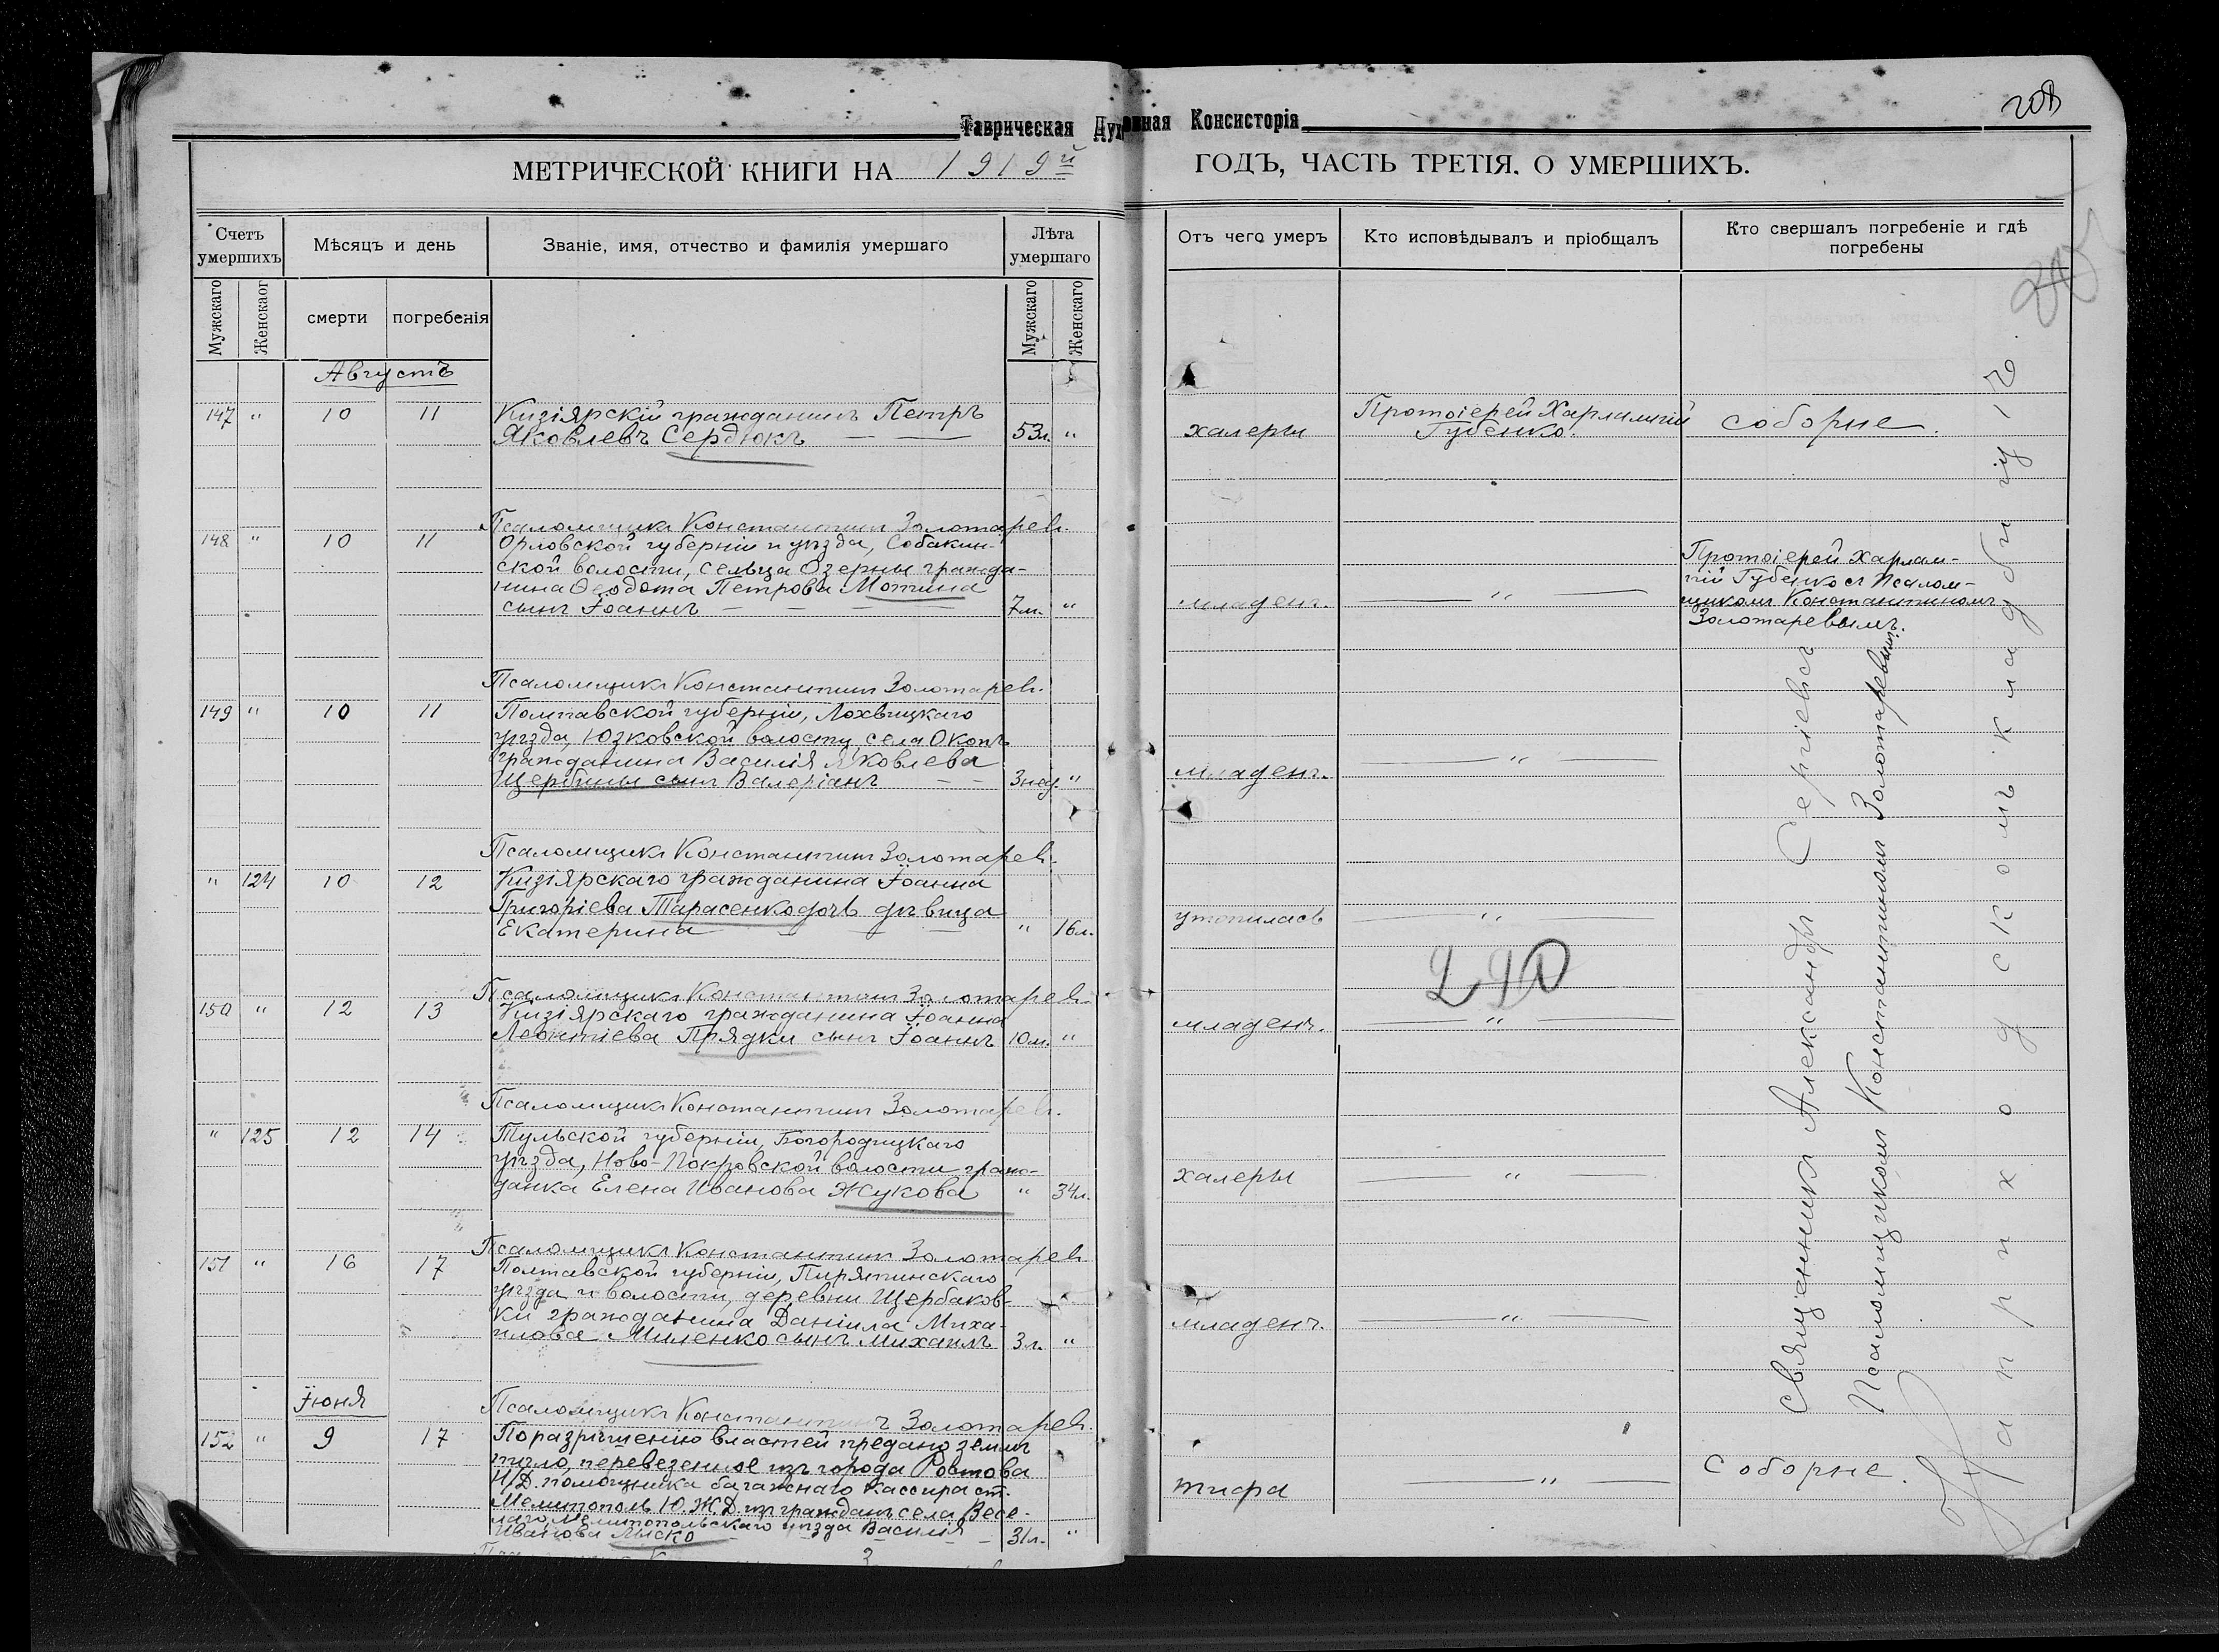 Таврическая Духовная Консисторія
208
МЕТРИЧЕСКОЙ КНИГИ НА 1919й ГОДЪ, ЧАСТЬ ТРЕТІЯ. О УМЕРШИХЪ.
Счетъ умершихъ
Мѣсяцъ и день
Званіе, имя, отчество и фамилія умершаго
Лѣта умершаго
Отъ чего умеръ
Кто исповѣдывалъ и пріобщалъ
Кто свершалъ погребеніе и гдѣ погребены
Мужскаго
Женскаог
смерти
погребенія
Мужскаго
Женскаго
Августъ
147 " 10 11 Кизіярскій гражданинъ Петръ
Яковлевъ Сердюкъ — — 53л. "
халеры
Протоіерей Харлампій
Губенко.
соборне.
Псаломщикъ Константинъ Золотаревъ.
148 " 10 11 Орловской губерніи и уѣзда, Собакин-
ской волости, сельца Озерны гражда-
нина Ѳеодота Петрова Мотина
сынъ Іоаннъ — — — — 7м. "
младенч. — " —
Протоіерей Харлам-
пій Губенко съ Псалом-
щикомъ Константиномъ
Золотаревымъ.
Псаломщикъ Константинъ Золотаревъ.
149 " 10 11 Полтавской губерніи, Лохвицкаго
уѣзда, Юзковской волости, села Окопъ
гражданина Василія Яковлева
Щербины сынъ Валеріанъ — — 3нед. "
младенч. — " —
Псаломщикъ Константинъ Золотаревъ.
" 124 10 12 Кизіярскаго гражданина Іоанна
Григоріева Тарасенко дочь дѣвица
Екатерина — — — " 16л.
утопилась — " —
Псаломщикъ Константинъ Золотаревъ.
150 " 12 13 Кизіярскаго гражданина Іоанна
Леонтіева Прядки сынъ Іоаннъ 10м. "
младенч. — " —
Псаломщикъ Константинъ Золотаревъ.
" 125 12 14 Тульской губерніи, Богородицкаго
уѣзда, Ново-Покровской волости граж-
данка Елена Иванова Жукова " 34л.
халеры — " —
Псаломщикъ Константинъ Золотаревъ
151 " 16 17 Полтавской губерніи, Пирятинскаго
уѣзда и волости, деревни Щербаков-
ки гражданина Даніила Миха-
илова Миленко сынъ Михаилъ 3л. "
младенч. — " —
Псаломщикъ Константинъ Золотаревъ.
Іюня
152 " 9 17 По разрѣшенію властей предано землѣ
тѣло, перевезенное изъ города Ростова
И/Д. помощника багажнаго кассира ст.
Мелитополь Ю.Ж.Д. изъ гражданъ села Весе-
лаго, Мелитопольскаго уѣзда Василія
Иванова Лыско — — — 31л. "
тифа — " —
соборне.
Священникъ Александръ Сергіевъ съ
Псаломщикомъ Константиномъ Золотаревымъ
На приходскомъ кладбищѣ.